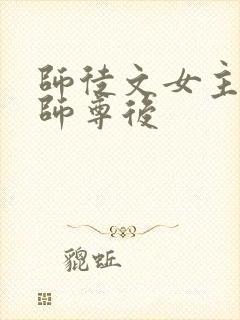 師徒文女主
師尊後
貔蚯